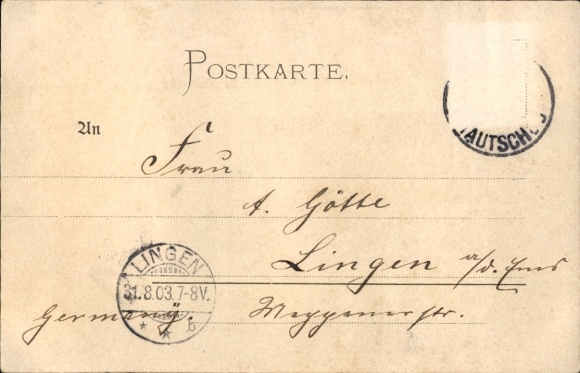 POSTKARTE.
AUTSCH
An
Frau
A. Götte
Lingen a/d. Ems
LINGEN
31.8.03.7-8V.
* * b
Germany.
Meppenerstr.